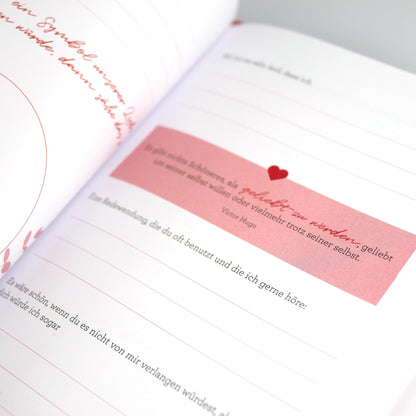 ein Symbol unserer
würde, dann sähe das
dass ich
Es gibt nichts Schöneres, als geliebt zu werden, geliebt
um seiner selbst willen oder vielmehr trotz seiner selbst.
Victor Hugo
Eine Redewendung, die du oft benutzt und die ich gerne höre:
Es wäre schön, wenn du es nicht von mir verlangen würdest, a
dich würde ich sogar